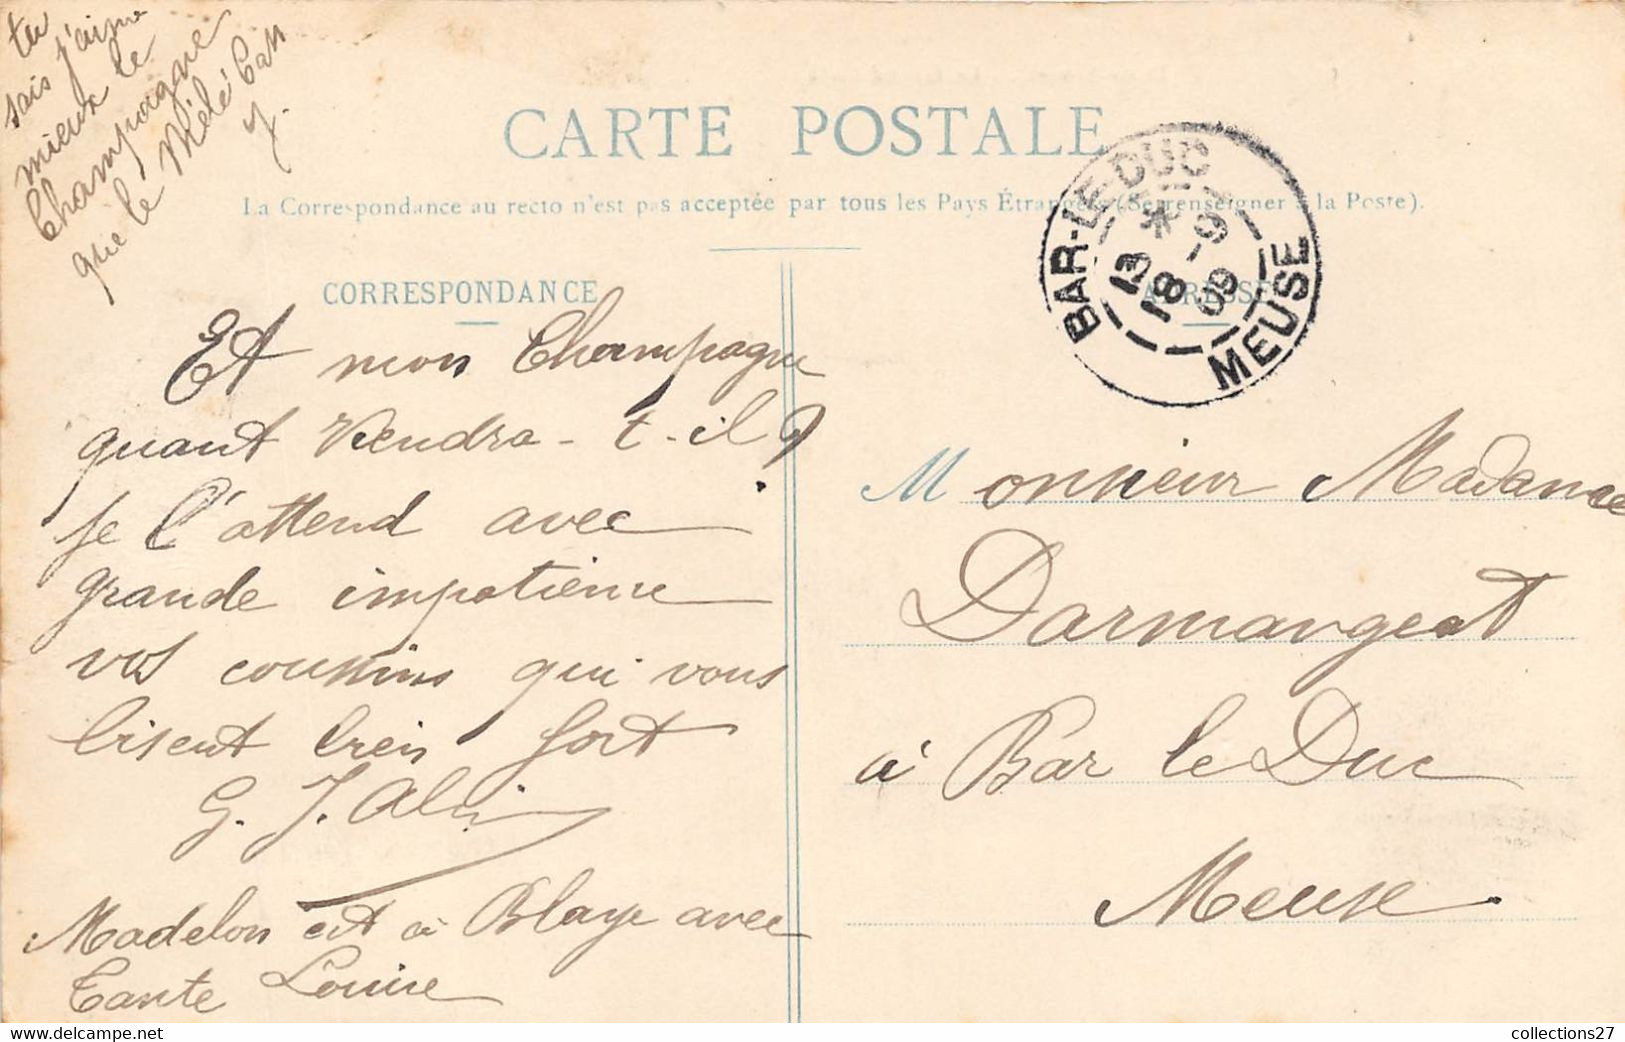 tu
sais j'aime
mieux le
Champagne
que le Mélé Cass
J.
CARTE POSTALE
La Correspondance au recto n'est pas acceptée par tous les Pays Étrangers (Se renseigner à la Poste).
CORRESPONDANCE
Et mon Champagne
quant viendra-t-il ?
je l'attend avec
grande impatience
vos cousins qui vous
bisent bien fort
G. J.
Madelon est à Blaye avec
tante Louise
BAR-LE-DUC
* 9
13 -
18 09
MEUSE
ADRESSE
Monsieur Madame
Darmangeat
à Bar le Duc
Meuse.
www.delcampe.net
collections27